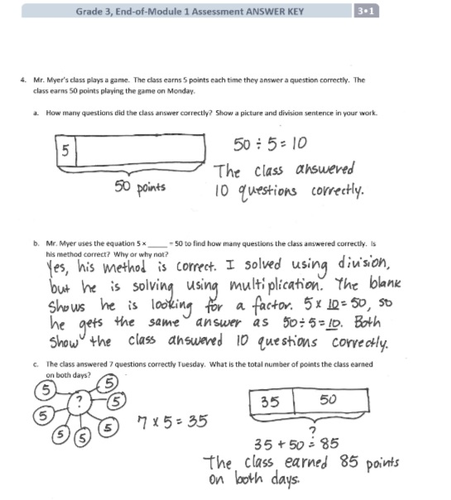 Grade 3, End-of-Module 1 Assessment ANSWER KEY 3•1
4. Mr. Myer's class plays a game. The class earns 5 points each time they answer a question correctly. The
class earns 50 points playing the game on Monday.
a. How many questions did the class answer correctly? Show a picture and division sentence in your work.
5
50 points
50 ÷ 5 = 10
The class answered
10 questions correctly.
b. Mr. Myer uses the equation 5 × ____ = 50 to find how many questions the class answered correctly. Is
his method correct? Why or why not?
Yes, his method is correct. I solved using division,
but he is solving using multiplication. The blank
shows he is looking for a factor. 5 x 10 = 50, so
he gets the same answer as 50÷5=10. Both
show the class answered 10 questions correctly.
c. The class answered 7 questions correctly Tuesday. What is the total number of points the class earned
on both days?
5
5
5
?
5
5
5
5
7 x 5 = 35
35 50
?
35 + 50 = 85
The class earned 85 points
on both days.